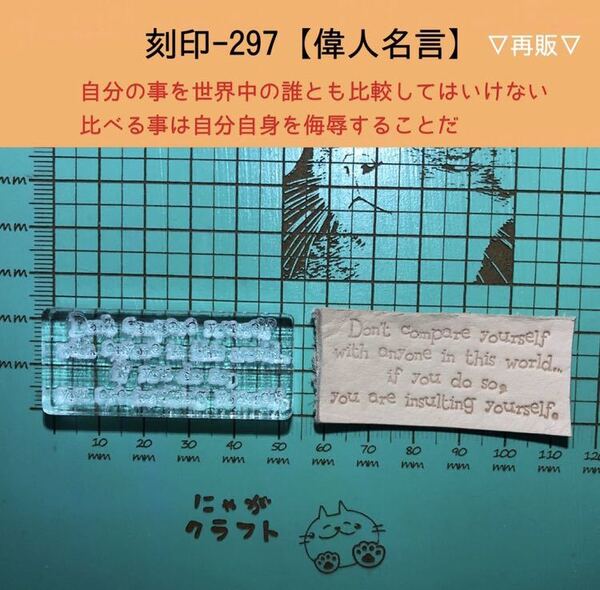 刻印-297【偉人名言】 ▽再販▽
自分の事を世界中の誰とも比較してはいけない
比べる事は自分自身を侮辱することだ
Don't compare yourself
with anyone in this world...
if you do so,
you are insulting yourself.
10 20 30 40 50 60 70 80 90 100 110 120
mm mm mm mm mm mm mm mm mm mm mm
にゃが
クラフト